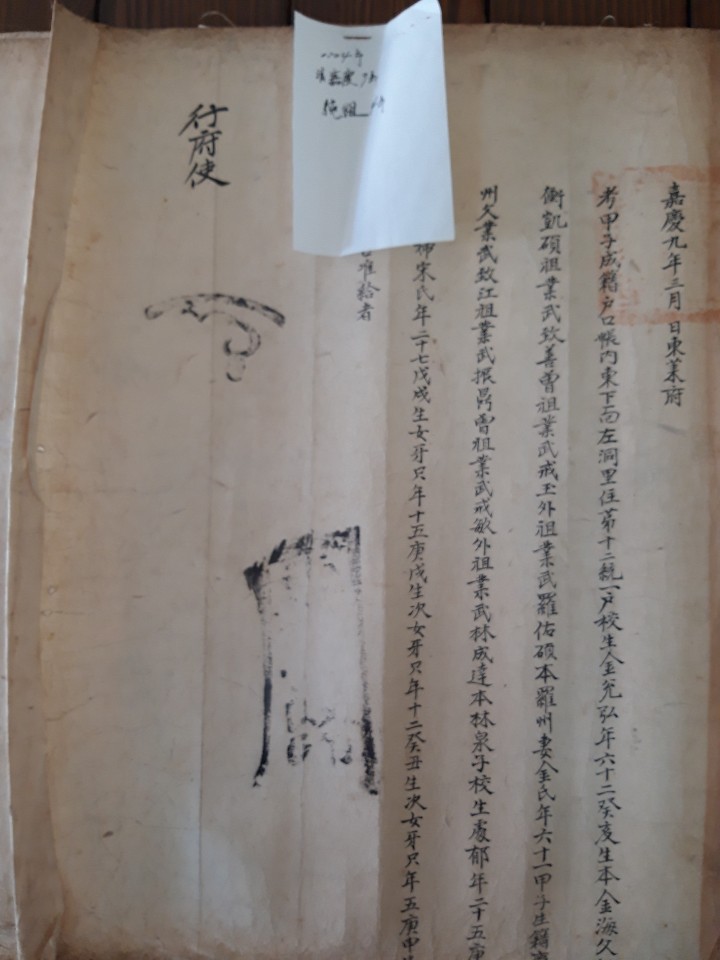 嘉慶九年三月 日東萊府
考甲子成籍戶口帳內東下面左洞里住第十二統一戶校生金允弘年六十二癸亥生本金海父
衡凱碩祖業武致善曾祖業武戒玉外祖業武羅佑碩本羅州妻金氏年六十一甲子生籍
州父業武致江祖業武振昺曾祖業武成敏外祖業武林成達本林泉子校生處郁年二十五庚
婦宋氏年二十七戊戌生女牙只年十五庚戌生次女牙只年十二癸丑生次女牙只年五庚申
准給者
行府使